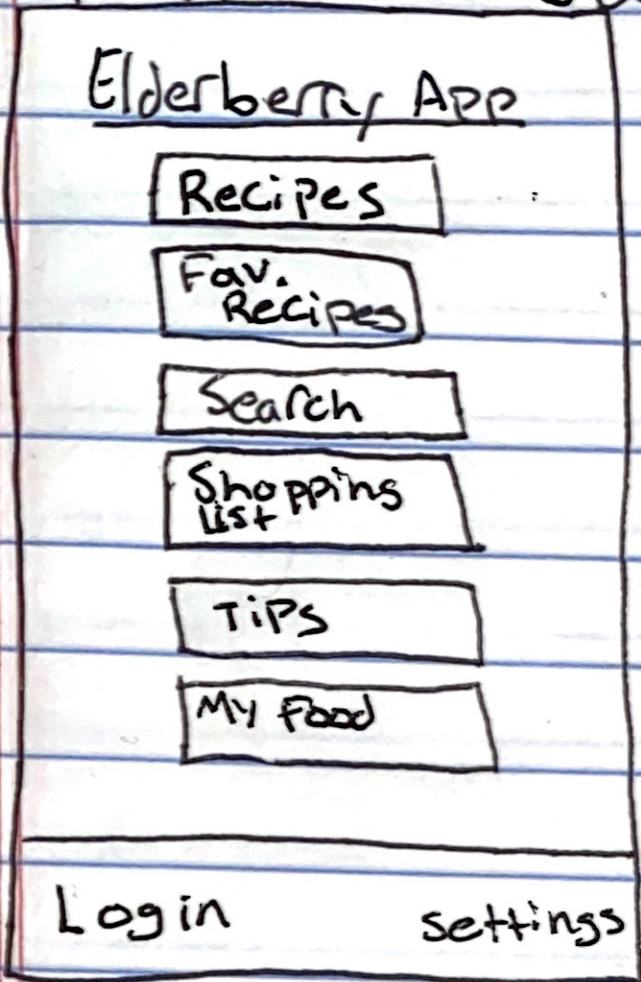 Elderberry App
Recipes
Fav.
Recipes
Search
Shopping
List
Tips
My Food
Login
settings